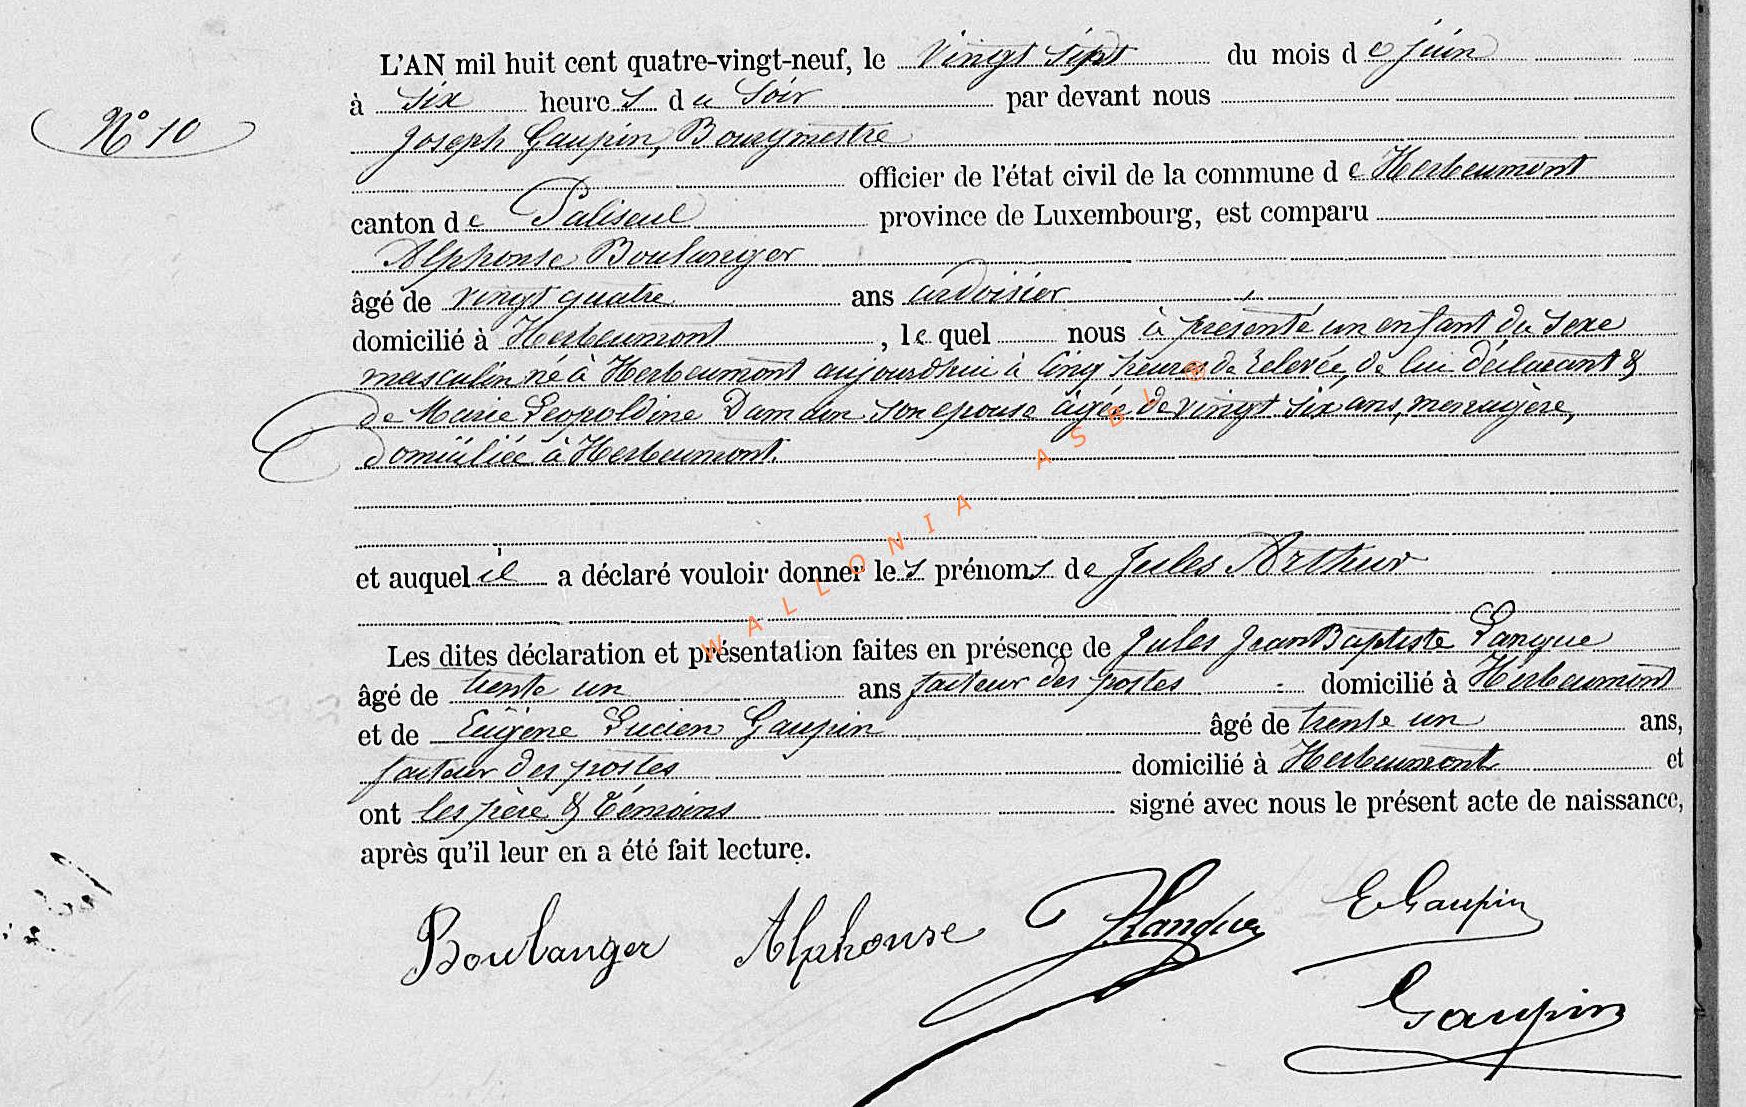 L'AN mil huit cent quatre-vingt-neuf, le vingt sept du mois de juin
à six heures du soir par devant nous
N° 10
Joseph Gaupin, Bourgmestre
officier de l'état civil de la commune de Herbeumont
canton de Paliseul province de Luxembourg, est comparu
Alphonse Boulanger
âgé de vingt quatre ans ardoisier
domicilié à Herbeumont, lequel nous à présenté un enfant du sexe
masculin né à Herbeumont aujourdhui à cinq heures de relevée, de lui déclarant &
de Marie Leopoldine Damain son epouse âgée de vingt six ans, menagère,
domiciliée à Herbeumont.
et auquel il a déclaré vouloir donner les prénoms de Jules Arthur
Les dites déclaration et présentation faites en présence de Jules Jean Baptiste Langue
âgé de trente un ans facteur des postes domicilié à Herbeumont
et de Eugène Lucien Gaupin âgé de trente un ans,
facteur des postes domicilié à Herbeumont et
ont les père & témoins signé avec nous le présent acte de naissance,
après qu'il leur en a été fait lecture.
Boulanger Alphonse JLangue E Gaupin
Gaupin
WALLONIA ASBL ©